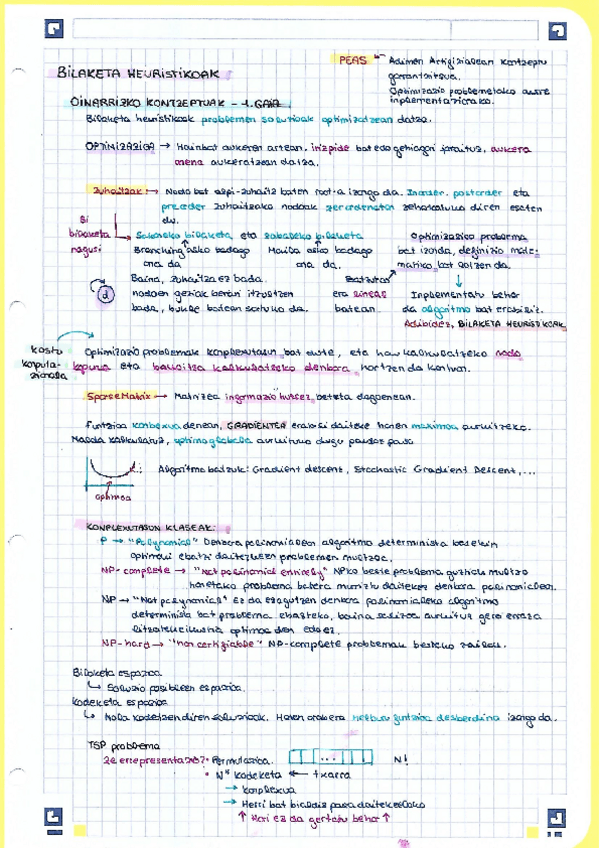 PEAS → Adimen Artifizialean kontzeptu
garrantzitsua.
Optimizazio problemetako aurre
inplementaziorako.
BILAKETA HEURISTIKOAK
OINARRIZKO KONTZEPTUAK - 1. GAIA
Bilaketa heuristikoak problemen soluzioak optimizatzean datza.
OPTIMIZAZIOA → Hainbat aukeren artean, irizpide bat edo gehiagori jarraituz, aukera
onena aukeratzean datza.
Zuhaitzak → Nodo bat azpi-zuhaitz baten root-a izango da. Inorder, postorder eta
preorder zuhaitzako nodoak zer ordenetan zeharkatuko diren esaten
du.
Si bilaketa nagusi
Sakoneko bilaketa eta zabaleko bilaketa
Branching asko badago Maila asko badago
ona da ona da.
Baina, zuhaitza ez bada.
nodoen geziak berari itzultzen
bada, bukle batean sartuko da.
Batzutan
era lineal
batean.
Optimizazio problema
bat izanda, definizio mate-
matiko bat
Inplementatu behar
da algoritmo bat erabiliz.
Adibidez, BILAKETA HEURISTIKOAK
kostu konputa-
zionala
Optimizazio problemak konplexutasun bat dute, eta hau kalkulatzeko nodo
kopurua eta bakoitza kalkulatzeko denbora hartzen da kontuan.
Sparse Matrix → Matrizea informazio hutsez beteta dagoenean.
Funtzioa konbexua denean, GRADIENTEA erabili daiteke honen maximoa aurkitzeko.
Malda kalkulatuz, optimo globala aurkituko dugu pausoz pauso
Algoritmo batzuk: Gradient descent, Stochastic Gradient Descent, ...
optimoa
KONPLEXUTASUN KLASEAK:
P → "Polynomial" Denbora polinomialean algoritmo determinista batekin
optimoki ebatzi daitezkeen problemen multzoa.
NP-complete → "Not polinomial entirely" NPko beste problema guztiak multzo
honetako problema batera murriztu daitezke denbora polinomialean.
NP → "Not polynomial" Ez da ezagutzen denbora polinomialeko algoritmo
determinista bat problema ebazteko, baina soluzioa aurkituz gero erraza
optimoa den edo ez.
NP-hard → "non certifiable" NP-complete problemak bezteko zailak.
Bilaketa espazioa
↳ Soluzio posibleen espazioa.
Kodeketa espazioa
↳ Nola kodetzen diren soluzioak. Honen arabera helburu funtzioa desberdina izango da.
TSP problema
Ze errepresentazio? • Permutazioa. ... N!
• Nᴺ kodeketa ← txarra
→ konplexua
→ Herri bat birritan pasa daitekeelako
↑ Hori ez da gertatu behar ↑